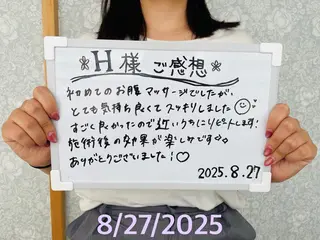 H様 ご感想
初めてのお腹マッサージでしたが、
とても気持ち良くてスッキリしました
すごく良かったので近いうちにリピートします!
施術後の効果が楽しみです
ありがとうございました!
2025.8.27
8/27/2025